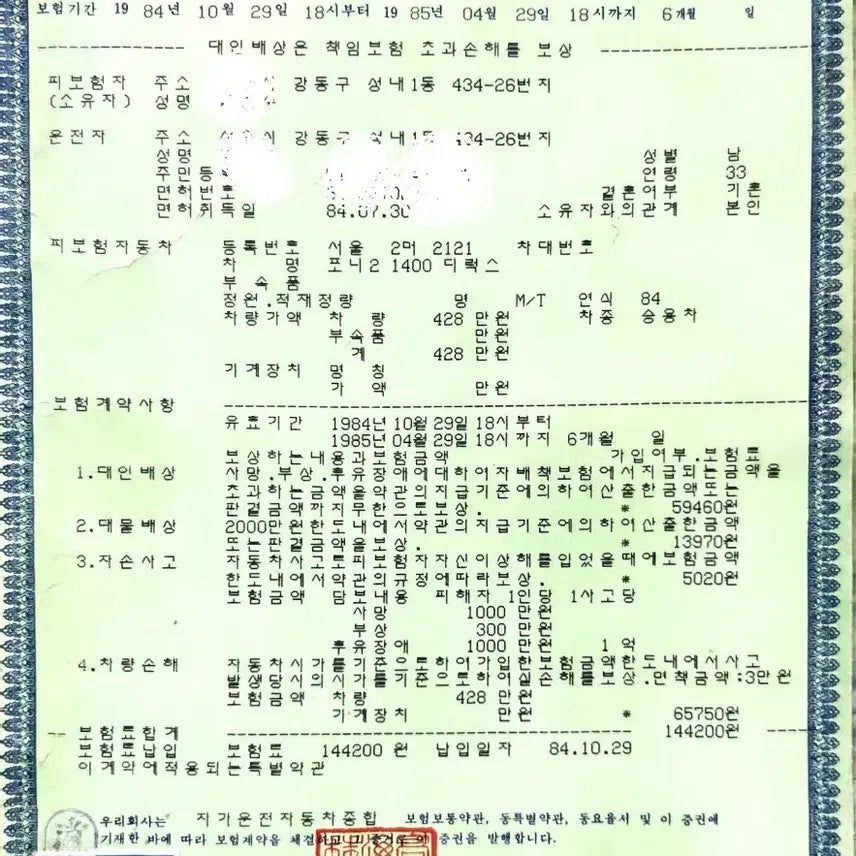 보험기간 19 84년 10월 29일 18시부터 19 85년 04월 29일 18시까지 6개월 일
대인배상은 책임보험 초과손해를 보상
피보험자 주소 시 강동구 성내1동 434-26번지
(소유자) 성명
운전자 주소 시 강동구 성내1동 434-26번지
성명 성별 남
주민등 연령 33
면허번호 결혼여부 기혼
면허취득일 84.07.30 소유자와의관계 본인
피보험자동차 등록번호 서울 2머 2121 차대번호
차 명 포니2 1400 디럭스
부 속 품
정원.적재정량 명 M/T 연식 84
차량가액 차 량 428 만원 차종 승용차
부속품 만원
계 428 만원
기계장치 명 칭
가 액 만원
보험계약사항
유효기간 1984년 10월 29일 18시부터
1985년 04월 29일 18시까지 6개월 일
보상하는내용과보험금액 가입여부.보험료
1.대인배상 사망.부상.후유장애에대하여자배책보험에서지급되는금액을
초과하는금액을약관의지급기준에의하여산출한금액또는
판결금액까지무한으로보상. * 59460원
2.대물배상 2000만원한도내에서약관의지급기준에의하여산출한금액
또는판결금액을보상. * 13970원
3.자손사고 자동차사고로피보험자자신이상해를입었을때에보험금액
한도내에서약관의규정에따라보상. * 5020원
보험금액 담보내용 피해자 1인당 1사고당
사망 1000 만원
부상 300 만원
후유장애 1000 만원 1 억
4.차량손해 자동차시가를기준으로하여가입한보험금액한도내에서사고
발생당시의시가를기준으로하여실손해를보상.면책금액:3만원
보험금액 차량 428 만원
기계장치 만원 * 65750원
보험료합계 144200원
보험료납입 보험료 144200 원 납입일자 84.10.29
이계약에적용되는특별약관
우리회사는 자가운전자동차종합 보험보통약관, 동특별약관, 동요율서 및 이 증권에
기재한 바에 따라 보험계약을 체결하고 그 증거로 이 증권을 발행합니다.